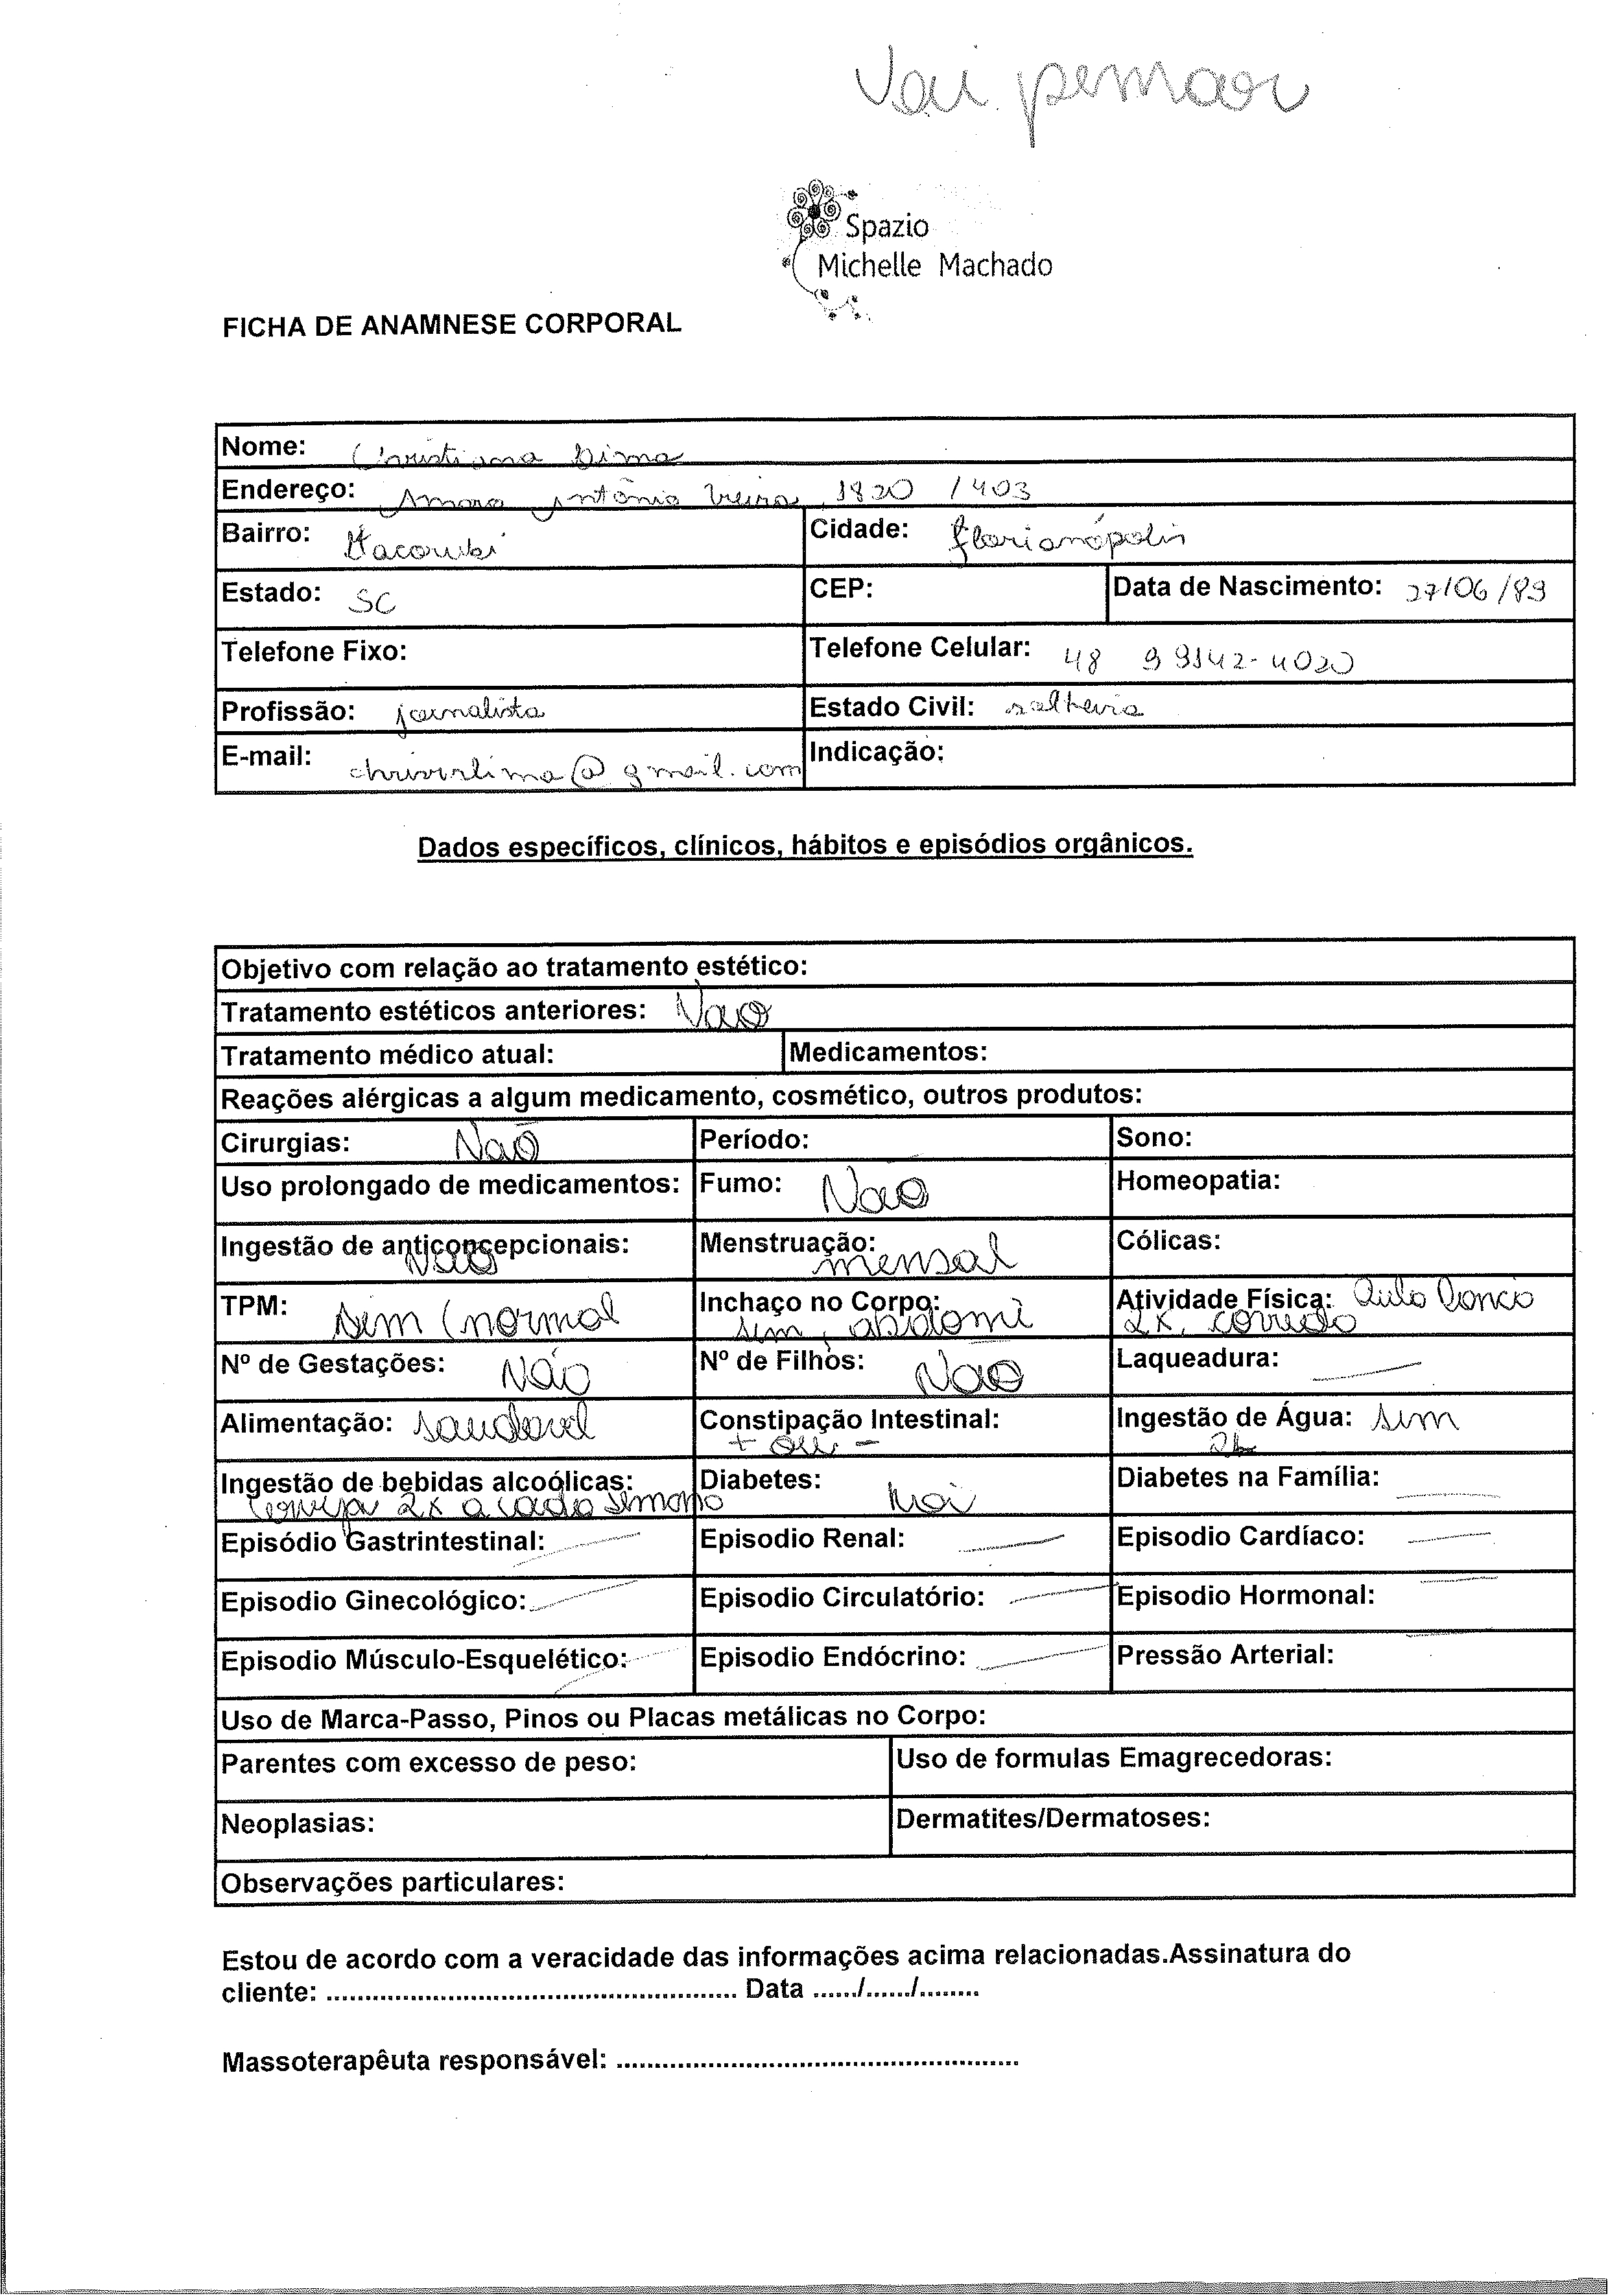 Vai pensar
Spazio
Michelle Machado
FICHA DE ANAMNESE CORPORAL
Nome: Christiana Lima
Endereço: Amaro Antônio Vieira, 1820 / 403
Bairro: Itacorubi Cidade: Florianópolis
Estado: SC CEP: Data de Nascimento: 27/06/89
Telefone Fixo: Telefone Celular: 48 99142-4020
Profissão: jornalista Estado Civil: solteira
E-mail: @gmail.com Indicação:
Dados específicos, clínicos, hábitos e episódios orgânicos.
Objetivo com relação ao tratamento estético:
Tratamento estéticos anteriores: Não
Tratamento médico atual: Medicamentos:
Reações alérgicas a algum medicamento, cosmético, outros produtos:
Cirurgias: Não Período: Sono:
Uso prolongado de medicamentos: Fumo: Não Homeopatia:
Ingestão de anticoncepcionais: Não Menstruação: mensal Cólicas:
TPM: sim (normal Inchaço no Corpo: sim, abdomi Atividade Física: Aula
2x, corrida
Nº de Gestações: Não Nº de Filhos: Não Laqueadura: —
Alimentação: saudavel Constipação Intestinal: + ou - Ingestão de Água: sim
2L
Ingestão de bebidas alcoólicas: Diabetes: Não Diabetes na Família: —
Cerveja 2x a cada semana
Episódio Gastrintestinal: — Episodio Renal: — Episodio Cardíaco: —
Episodio Ginecológico: — Episodio Circulatório: — Episodio Hormonal: —
Episodio Músculo-Esquelético: — Episodio Endócrino: — Pressão Arterial: —
Uso de Marca-Passo, Pinos ou Placas metálicas no Corpo:
Parentes com excesso de peso: Uso de formulas Emagrecedoras:
Neoplasias: Dermatites/Dermatoses:
Observações particulares:
Estou de acordo com a veracidade das informações acima relacionadas.Assinatura do
cliente: ..................................................... Data ....../....../........
Massoterapêuta responsável: ....................................................